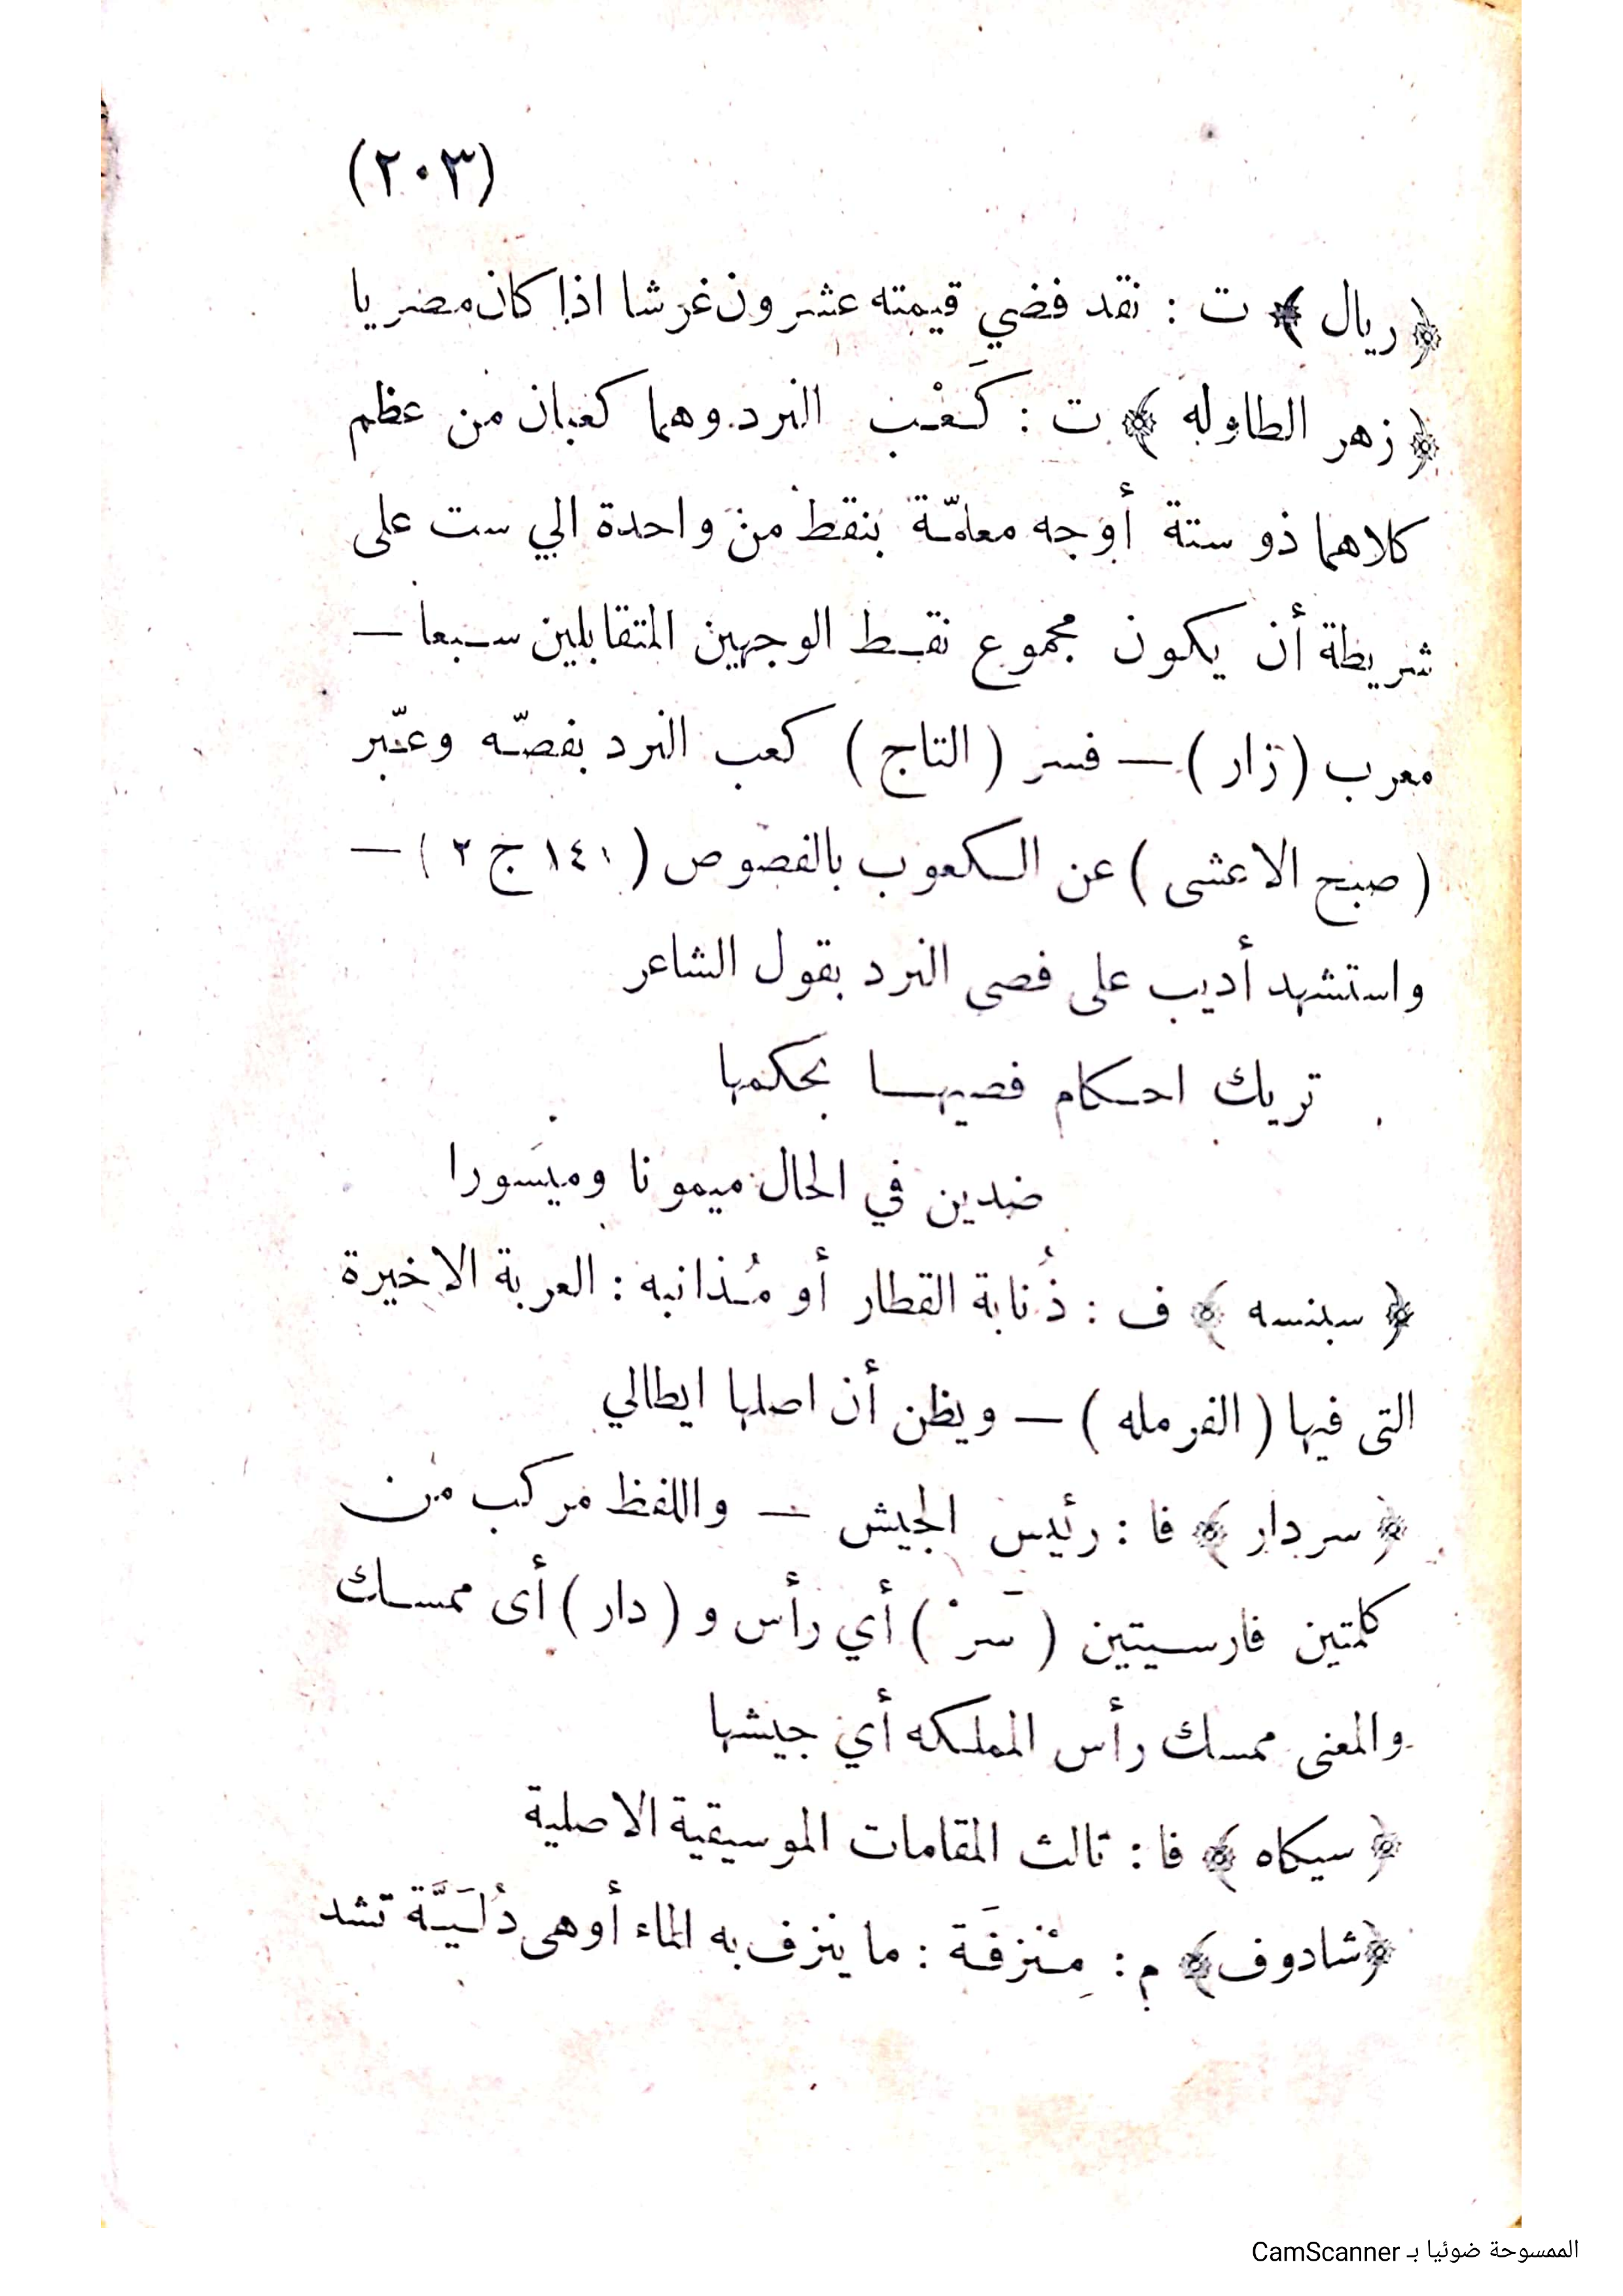 (٢٠٣)
﴿ريال﴾ ت : نقد فضي قيمته عشرون غرشا اذا كان مصريا
﴿زهر الطاوله﴾ ت : كَعْب النرد وهما كعبان من عظم
كلاهما ذو ستة أوجه معلمّة بنقط من واحدة الي ست على
شريطة أن يكون مجموع نقط الوجهين المتقابلين سبعا —
معرب (زار) — فسر (التاج) كعب النرد بفصّه وعبّر
(صبح الاعشى) عن الكعوب بالفصوص (١٤١ ج ٢) —
واستشهد أديب على فصى النرد بقول الشاعر
تريك احكام فصيها بحكمها
ضدين في الحال ميمونا وميسورا
﴿سبنسه﴾ ف : ذُنابة القطار أو مُذانبه : العربة الاخيرة
التى فيها (الفرمله) — ويظن أن اصلها ايطالي
﴿سردار﴾ فا : رئيس الجيش — واللفظ مركب من
كلمتين فارسيتين (سَرْ) أي رأس و (دار) أى ممسك
والمعنى ممسك رأس المملكه أي جيشها
﴿سيكاه﴾ فا : ثالث المقامات الموسيقية الاصلية
﴿شادوف﴾ م : مِنْزفَة : ما ينزف به الماء أوهى دُلَيَّة تشد
الممسوحة ضوئيا بـ CamScanner